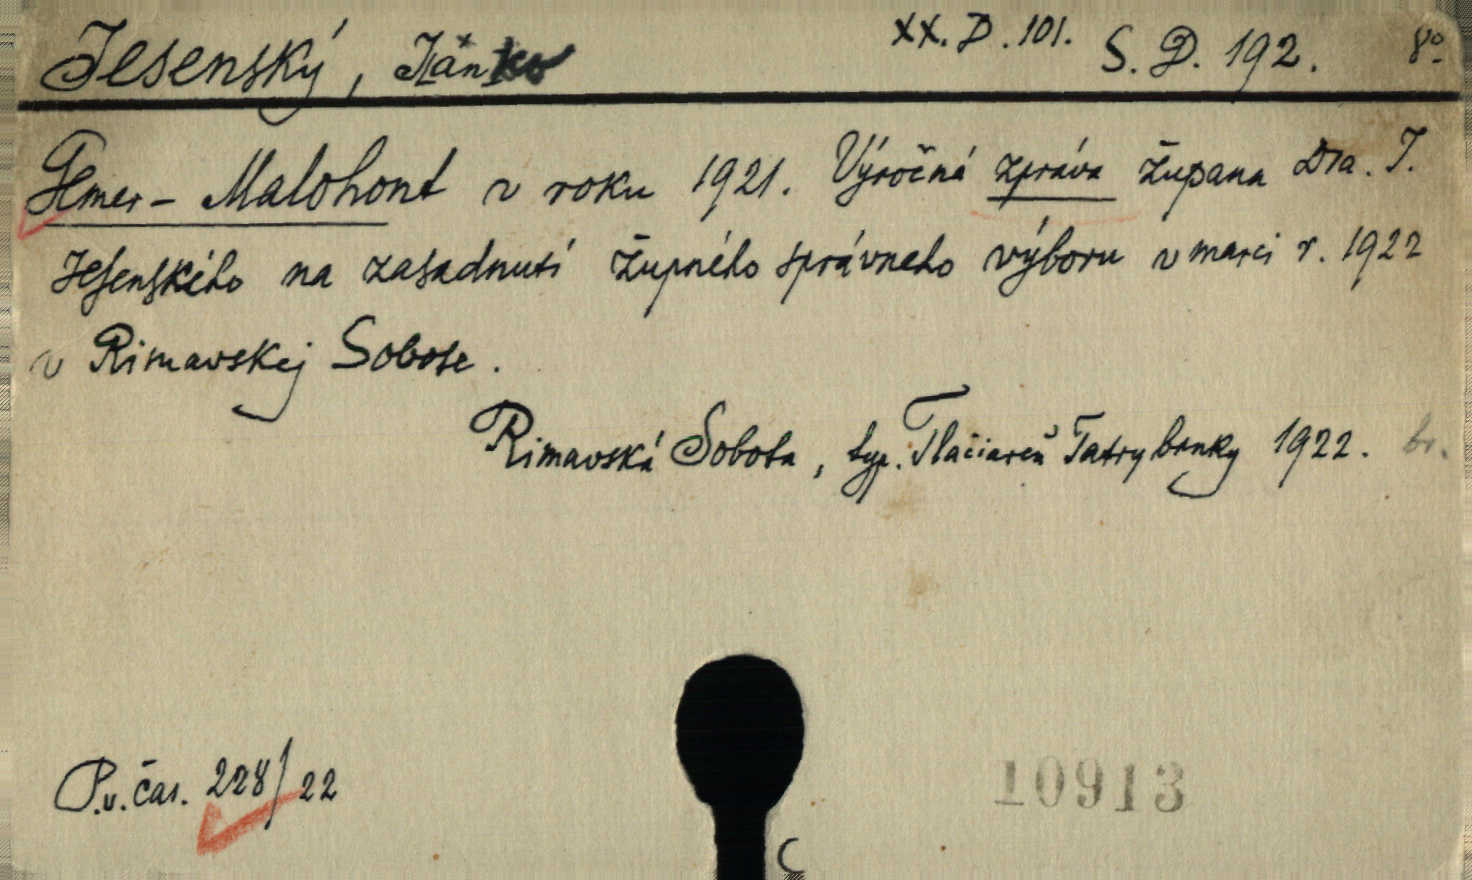 Jesenský, Jänko XX. D. 101. S. D. 192. 8º
Gemer - Malohont v roku 1921. Výročná zpráva župana Dra. J.
Jesenského na zasadnutí župného správneho výboru v marci r. 1922
v Rimavskej Sobote.
Rimavská Sobota, typ. Tlačiareň Tatry brnky 1922. br.
P.v. čas. 228/22
10913